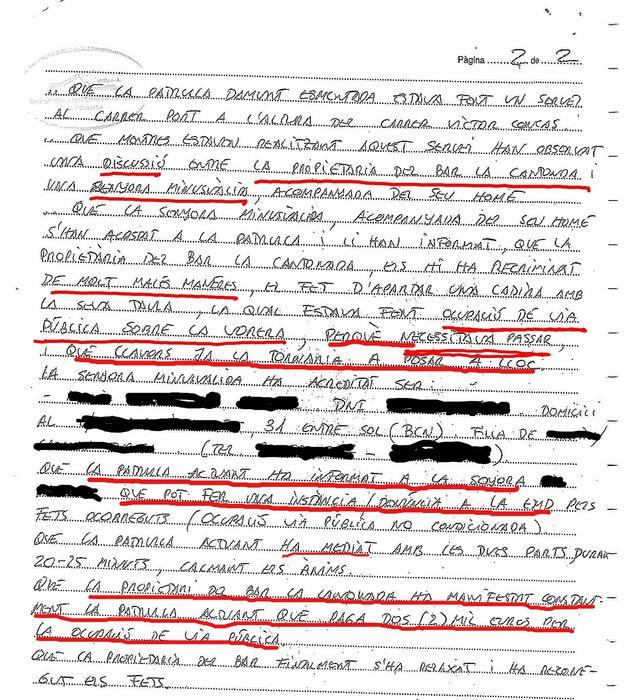 Pàgina 2 de 2
.. QUE LA PATRULLA DAMUNT ESMENTADA ESTAVA FENT UN SERVEI
AL CARRER PORT A L'ALÇADA DEL CARRER VICTOR CONCAS.
.. QUE MENTRES ESTAVEN REALITZANT AQUEST SERVEI HAN OBSERVAT
UNA DISCUSSIÓ ENTRE LA PROPIETARIA DEL BAR LA CANTONADA I
UNA SENYORA MINUSVÀLIDA, ACOMPANYADA DEL SEU HOME
.. QUE LA SENYORA MINUSVÀLIDA, ACOMPANYADA DEL SEU HOME
S'HAN ACOSTAT A LA PATRULLA I LI HAN INFORMAT, QUE LA
PROPIETÀRIA DEL BAR LA CANTONADA, ELS HI HA RECRIMINAT
DE MOLT MALES MANERES, EL FET D'APARTAR UNA CADIRA AMB
LA SEVA TAULA, LA QUAL ESTAVA FENT OCUPACIÓ DE VIA
PÚBLICA SOBRE LA VORERA, PERQUÈ NECESSITAVA PASSAR,
I QUE LLAVORS JA LA TORNARIA A POSAR A LLOC.
LA SENYORA MINUSVALIDA HA ACREDITAT SER:
- DNI . DOMICILI
AL , 31 ENTRE SOL (BCN) FILLA DE /
(TEF. - )
QUE LA PATRULLA ACTUANT HA INFORMAT A LA SENYORA
QUE POT FER UNA INSTÀNCIA/DENÚNCIA A LA EMD PELS
FETS OCORREGUTS (OCUPACIÓ VIA PÚBLICA NO CONDICIONADA)
QUE LA PATRULLA ACTUANT HA MEDIAT AMB LES DUES PARTS, DURANT
20-25 MINUTS, CALMANT ELS ÀNIMS.
QUE LA PROPIETARI DEL BAR LA CANTONADA HA MANIFESTAT CONSTANT-
MENT LA PATRULLA ACTUANT QUE PAGA DOS (2) MIL EUROS PER
LA OCUPACIÓ DE VIA PÚBLICA.
QUE LA PROPIETARIA DEL BAR FINALMENT S'HA RELAXAT I HA RECONE-
GUT ELS FETS.